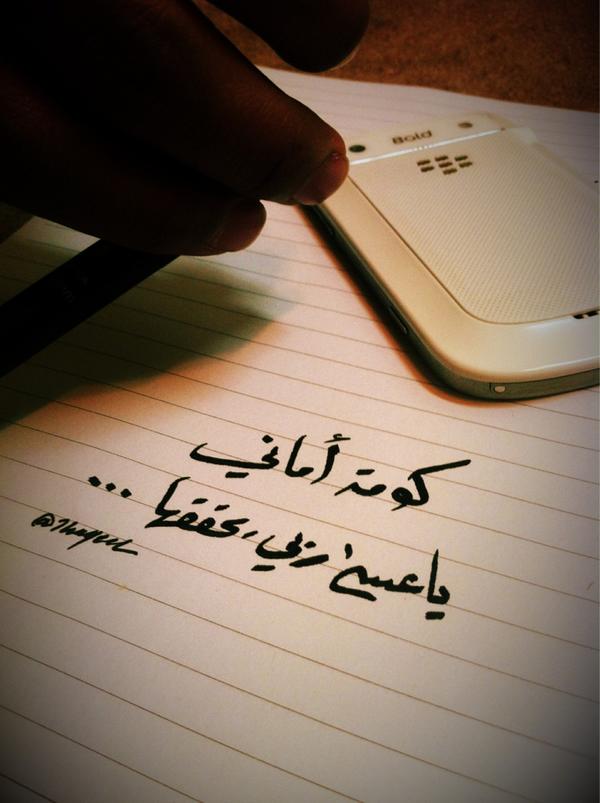 Bold
كومة أماني
يا عسى ربي يحققها ...